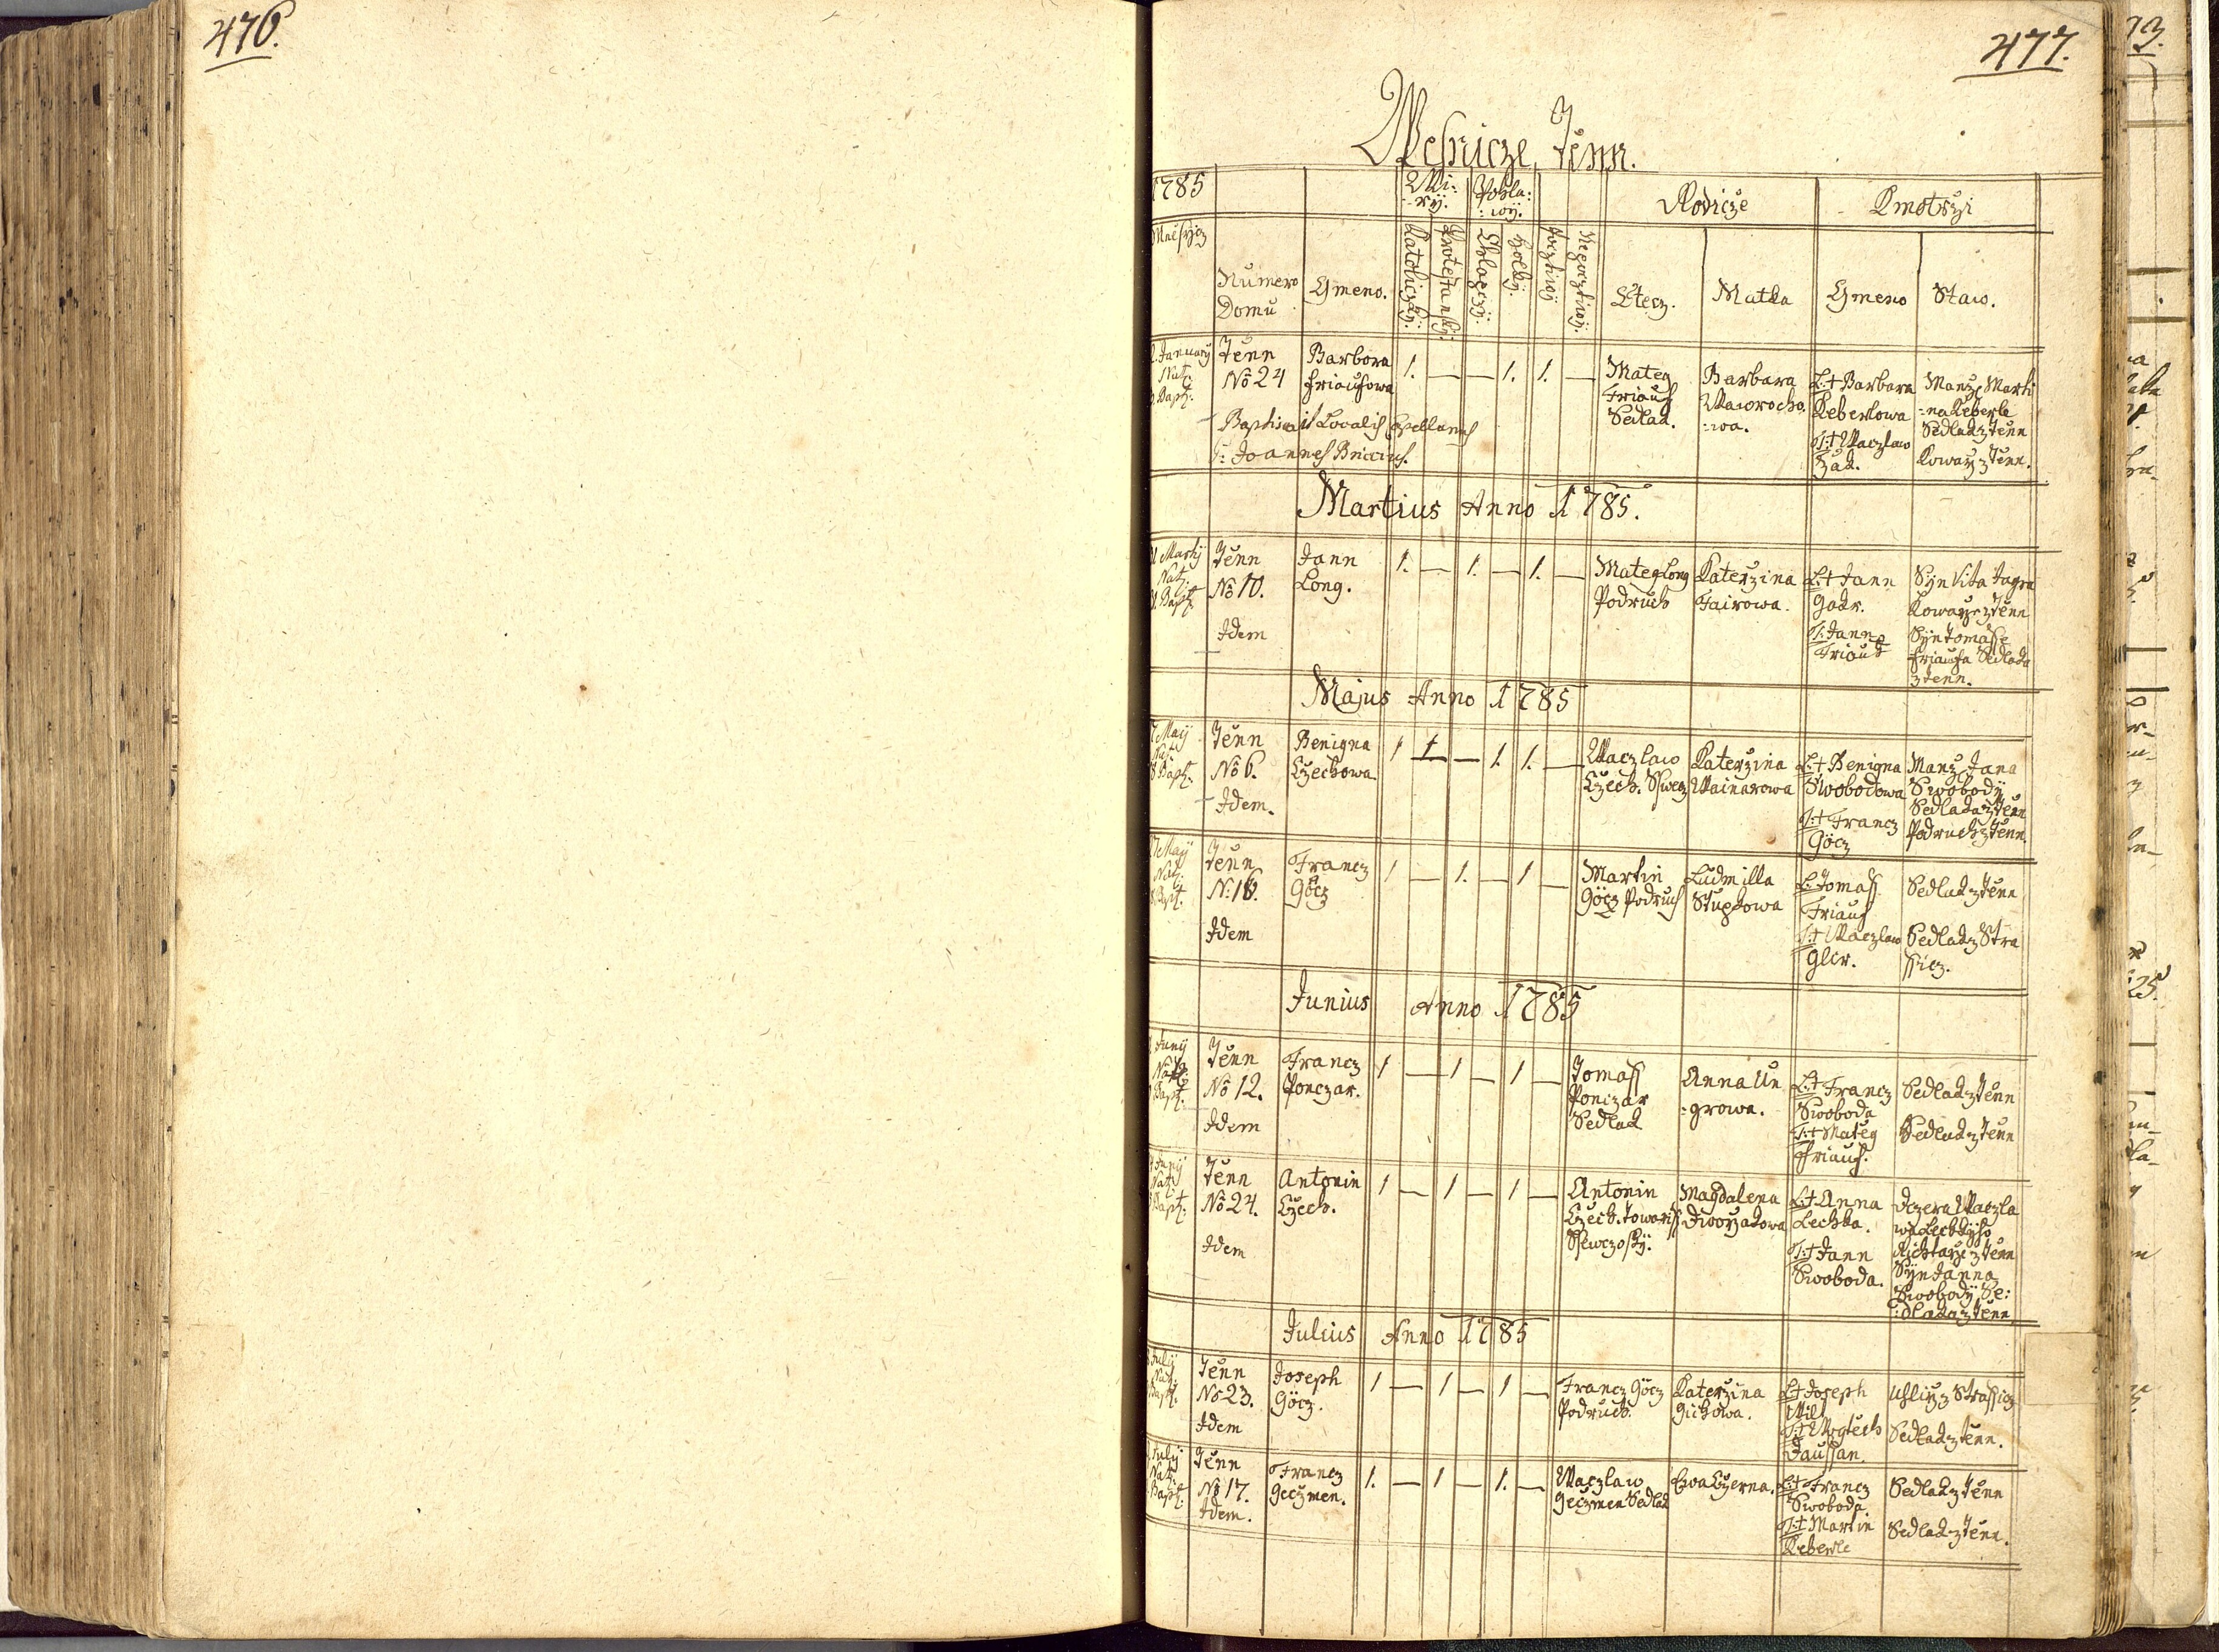 476.
477.
Wesnicze Tenn.
1785
Wi:
ry.
Pohla:
wy.
Rodicze
Kmotrzi
Mnesycz
Numero
Domu
Gmeno.
Katoliczky:
Protestansky:
Chlapczy:
Holky:
Poczliwy
Nepoczliwy:
Otecz.
Matka
Gmeno
Staw.
January
Nat:
Bapt:
Tenn
No 24
Barbora
Friaufowa
1. — — 1. 1. —
Mateg
Friauf
Sedlak.
Barbara
Waworocho
:wa.
L:† Barbara
Keberlowa
T:† Waczlaw
Manz: Marti
:na Keberle
Sedlak z Tenn
Kowarz z Tenn.
Baptisavit Localis Capellanus
Joannes
Martius Anno 1785.
Marty
Nat:
Bapt:
Tenn
No 10.
Idem
Jann
Long.
1. — 1. — 1. —
Mateg Long
Podruch
Katerzina
Fairowa.
L:† Jann
T: Jann
Friauf
Syn Vita
Kowarze z Tenn
Syn Tomasse
Friaufa Sedlaka
z Tenn.
Majus Anno 1785
7 May
Nat:
8 Bapt:
Tenn
No 6.
Idem.
Benigna
Czechowa
1 1 — 1. 1. —
Waczlaw
Czech. Sswecz
Katerzina
Wainarowa
L:† Benigna
Swobodowa
T:† Francz
Göcz
Manz: Jana
Swobody
Sedlaka z Tenn
Podruch z Tenn.
May
Nat:
Bapt.
Tenn
N: 16.
Idem
Francz
Göcz
1 — 1. — 1 —
Martin
Göcz Podruch
Ludmilla
Stupkowa
L: Tomass
Friauf
T:† Waczlaw
Sedlak z Tenn
Sedlak z Stra
ssicz.
Junius Anno 1785
Juny
Nat:
Bapt:
Tenn
No 12.
Idem
Francz
Ponczar.
1 — 1 — 1 —
Tomass
Ponczar
Sedlak
Anna Un
:growa.
L:† Francz
Swoboda
T:† Mateg
Friauf.
Sedlak z Tenn
Sedlak z Tenn
Juny
Nat:
Bapt:
Tenn
No 24.
Idem
Antonin
Czech.
1 — 1 — 1 —
Antonin
Czech. Towariss
Ssewczosky.
Magdalena
Dworzakowa
L:† Anna
Lechka.
T:† Jann
Swoboda.
Dczera Waczla
wa Lechkyho
Richtarze z Tenn
Syn Janna
Swobody Se:
:dlaka z Tenn
Julius Anno 1785
July
Nat:
Bapt:
Tenn
No 23.
Idem
Joseph
Göcz.
1 — 1 — 1 —
Francz Göcz
Podruch.
Katerzina
Gichowa.
L:† Joseph
Wilt
T:† Wogtech
Daussan.
Uhlirz z Strassicz
Sedlak z Tenn.
July
Nat:
Bapt:
Tenn
No 17.
Idem.
Francz
Geczmen.
1. — 1 — 1. —
Waczlaw
Geczmen Sedlak
Ewa Czerna.
L:† Francz
Swoboda
T:† Martin
Keberle
Sedlak z Tenn
Sedlak z Tenn.